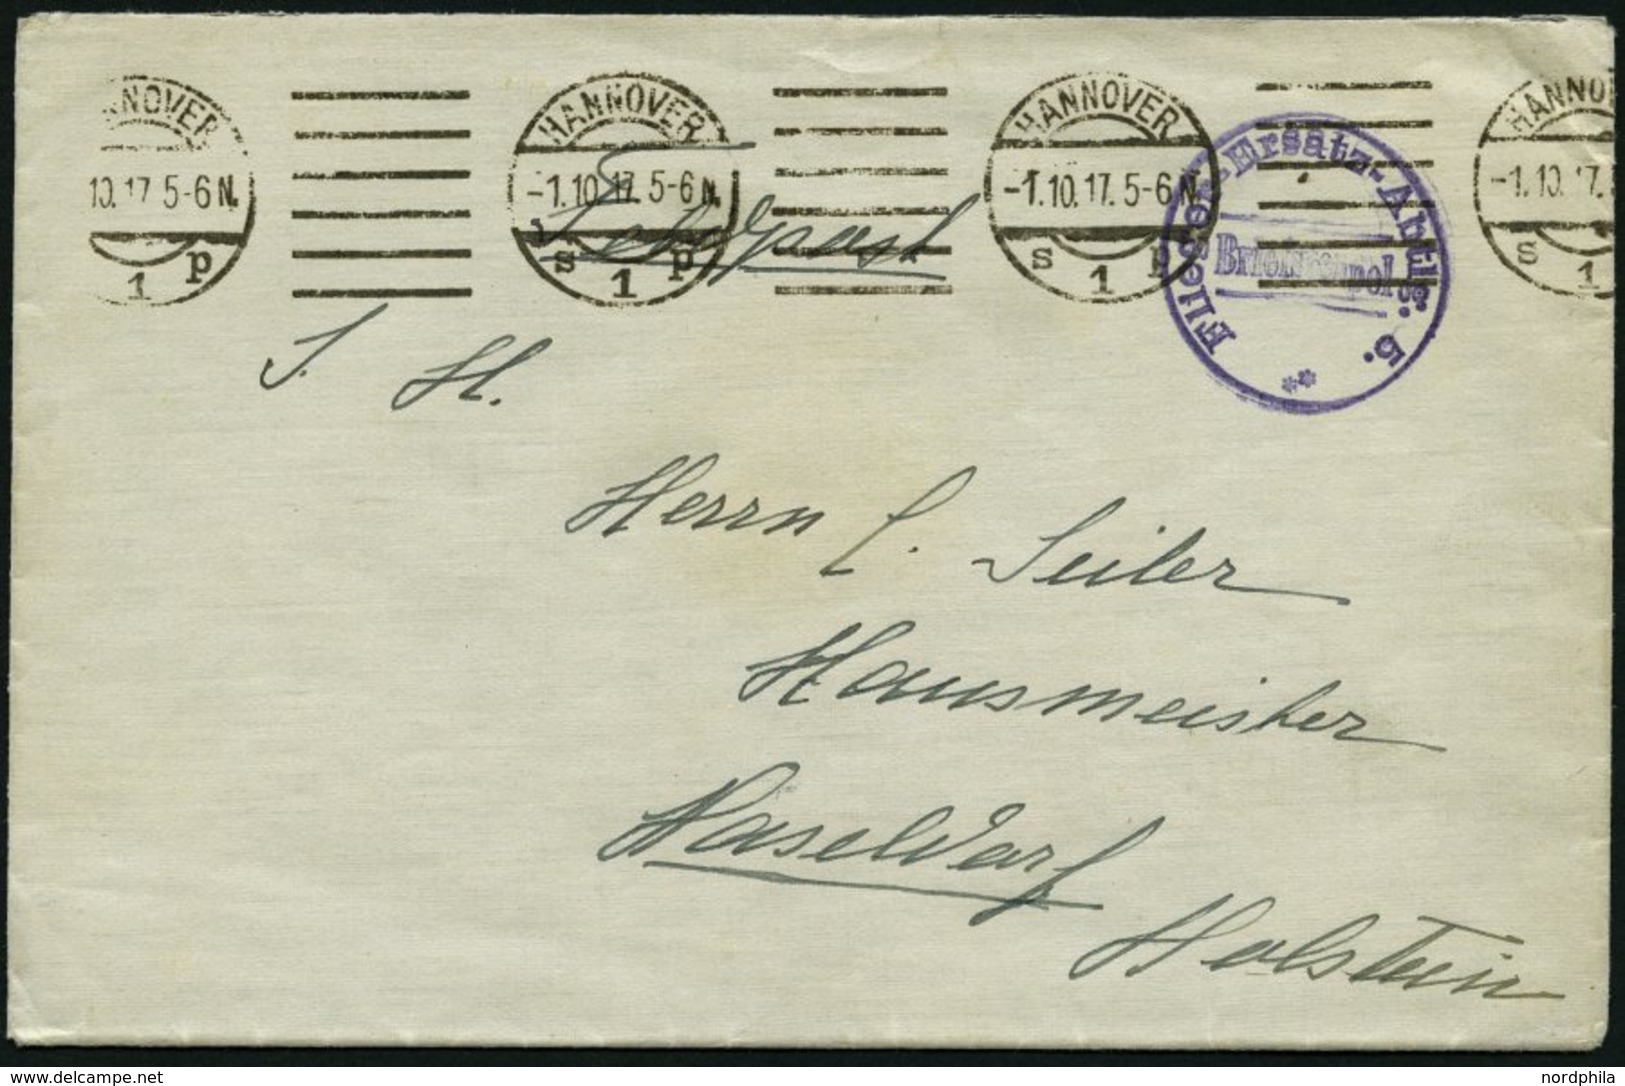 HANNOVER HANNOVER HANNOVER HANNO
10.17. 5-6 N. -1.10.17. 5-6 N. -1.10.17. 5-6 N. -1.10.17.
1 p s 1 p s 1 p s 1
Flieger-Ersatz-Abtlg. 5.
Briefstempel
**
Feldpost
S. H.
Herrn C. Seiler
Hausmeister
Haseldorf
Holstein
nordphila